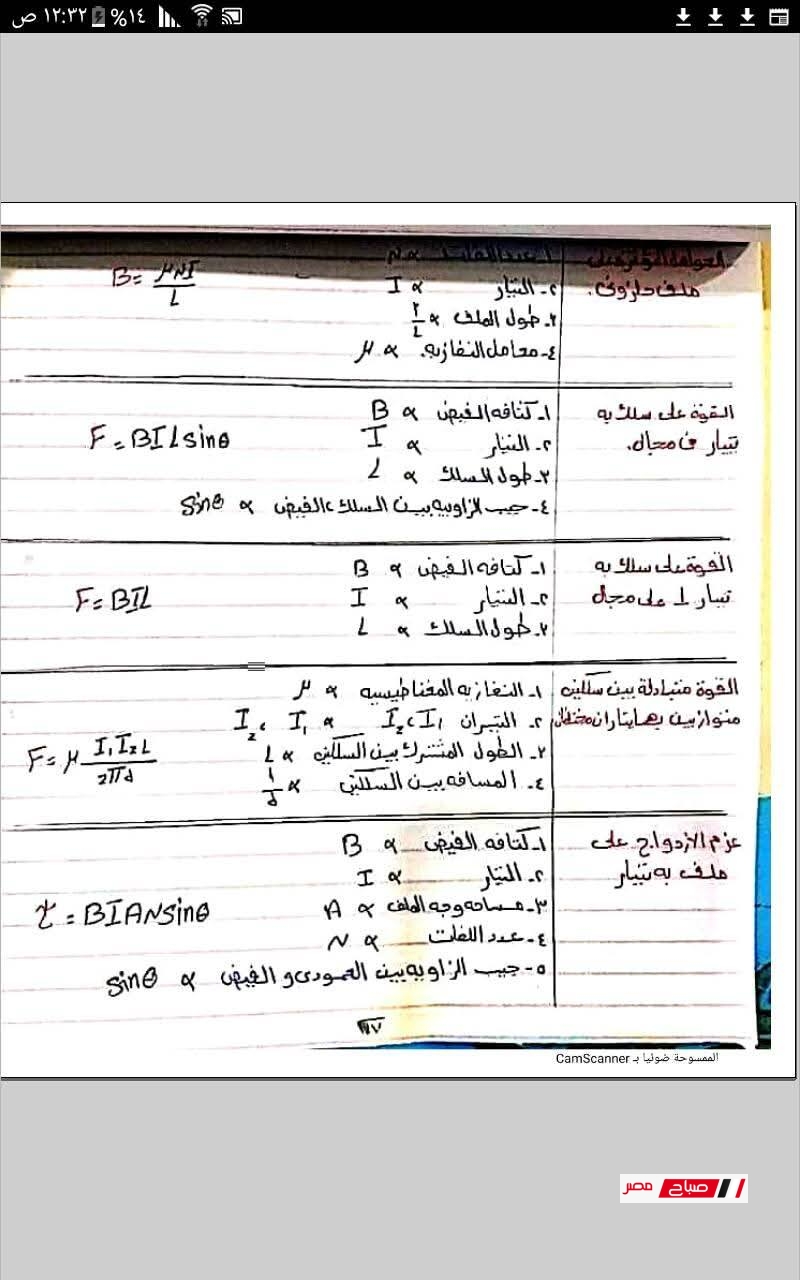 ١٢:٣٢ ص ١٤%
العوامل المؤثرة على
ملف حلزونى.
١. عدد اللفات ∝ N
٢- التيار ∝ I
٣- طول الملف ∝ 1/L
٤- معامل النفاذيه. ∝ μ
B = μNI/L
القوة على سلك به
تيار فى مجال.
١- كثافه الفيض ∝ B
٢- التيار ∝ I
٣- طول السلك ∝ L
٤- جيب الزاويه بين السلك، الفيض ∝ sinθ
F = BILsinθ
القوة على سلك به
تيار ⊥ على مجال
١- كثافه الفيض ∝ B
٢- التيار ∝ I
٣- طول السلك ∝ L
F = BIL
القوة متبادلة بين سلكين
متوازيين بهما تياران
١- النفاذيه المغناطيسيه ∝ μ
٢- التيران I₁، I₂ ∝ I₁، I₂
٣- الطول المشترك بين السلكين ∝ L
٤- المسافه بين السلكين ∝ 1/d
F = μ I₁I₂L/2πd
عزم الازدواج على
ملف به تيار
١- كثافه الفيض ∝ B
٢- التيار ∝ I
٣- مساحه وجه الملف ∝ A
٤- عدد اللفات ∝ N
٥- جيب الزاويه بين العمودى و الفيض ∝ sinθ
τ = BIANsinθ
الممسوحة ضوئيا بـ CamScanner
صباح مصر